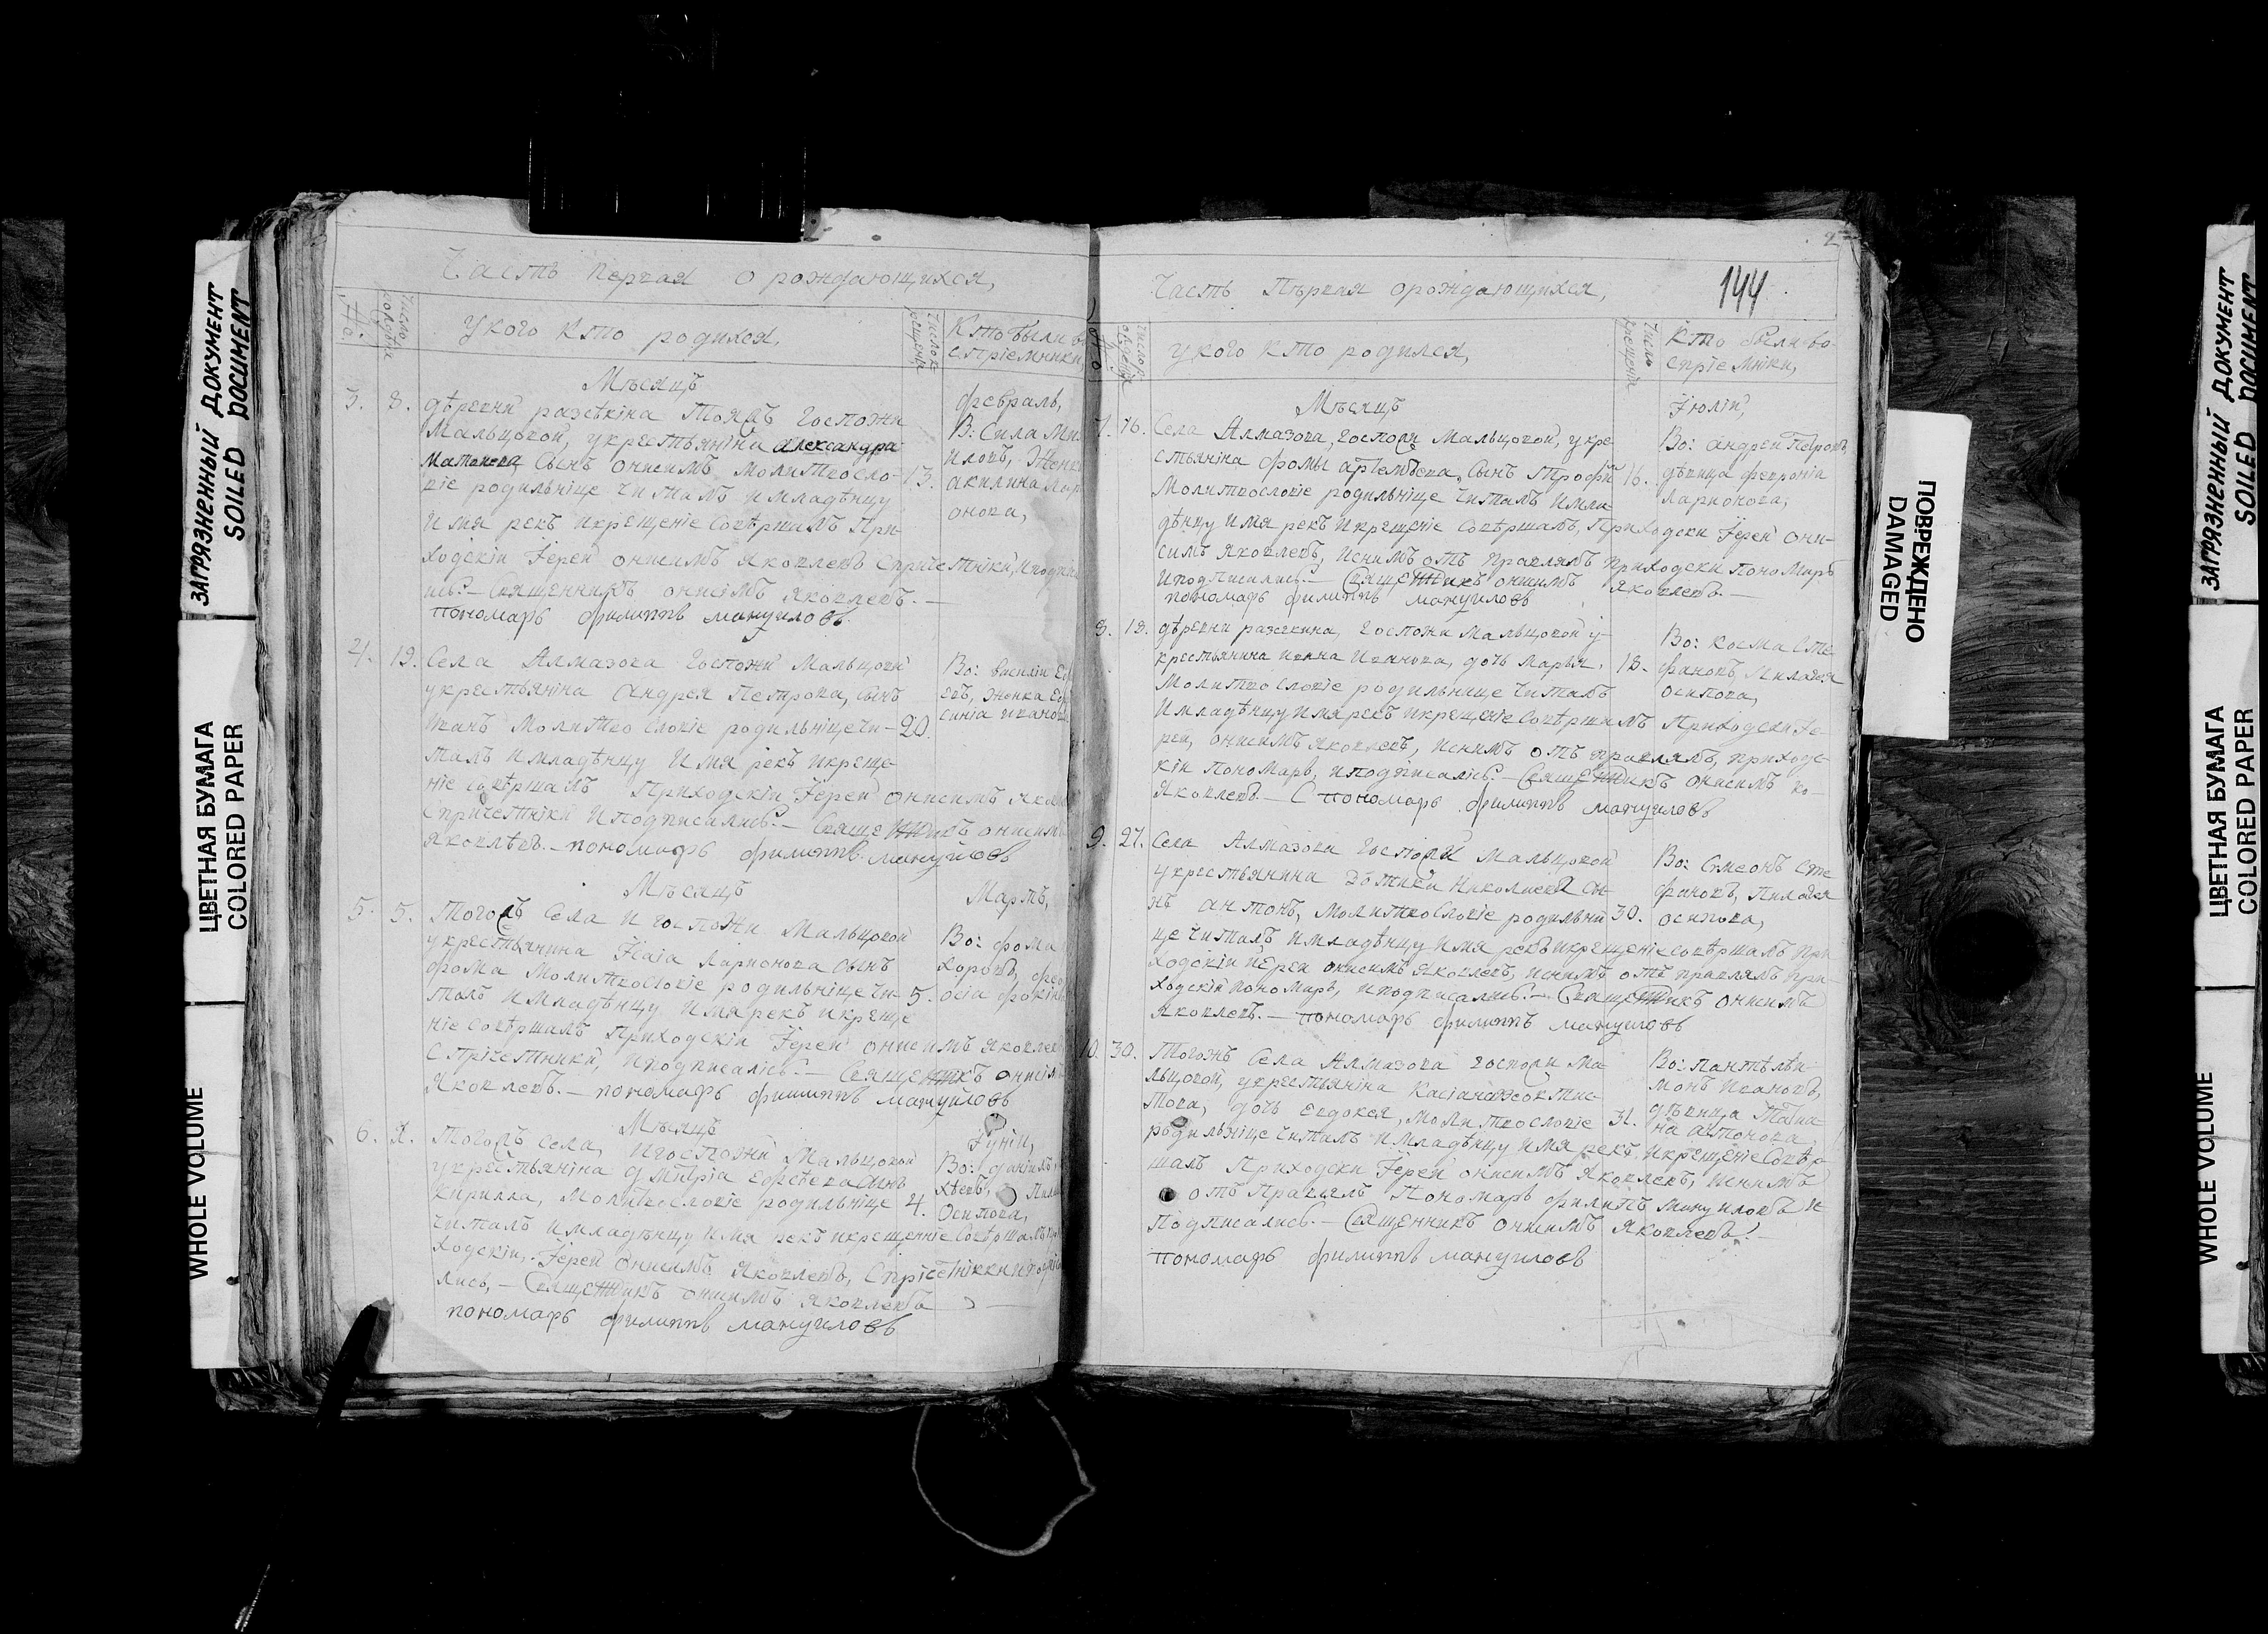 ЗАГРЯЗНЕННЫЙ ДОКУМЕНТ
SOILED DOCUMENT
ЦВЕТНАЯ БУМАГА
COLORED PAPER
WHOLE VOLUME
Часть первая о рождающихся,
№
Число рождения
У кого кто родился,
Число крещенія
Кто были во
спріемники,
Мѣсяцъ февраль,
3. 8. дѣревни разсѣкіна тояжъ госпожи
Мальцовой, укрестьяніна александра
Матвеева Сынъ онисимъ, молитвосло-
віе родильніце читалъ имладѣнцу
имя рекъ икрещеніе Совѣршалъ При-
ходскіи Іерей онисимъ Яковлевъ
ись:- Священникъ онисимъ Яковлевъ.-
пономарь филиппъ мануиловъ.
13.
В: Сила Ми
иловъ, Женка
акилина Лари
онова,
4. 19. Села Алмазова госпожи Мальцовой
укрестьяніна Андрея Петрова, Сынъ
Иванъ Молитвословіе родильніце чи-
талъ имладѣнцу имя рекъ икреще-
ніе Совѣршалъ Приходскіи Іерей онисимъ
Спричетніки Иподписались:- Священникъ онисимъ
Яковлѣвъ.- пономарь филиппъ мануиловъ
20.
Во: Василіи
Женка
синіа Ивано
Мѣсяцъ Мартъ,
5. 5. Тогожъ Села и госпожи Мальцовой
укрестьянина Ларионова Сынъ
фома молитвословіе родильніце чи-
талъ имладѣнцу имя рекъ икреще
ніе Совѣршалъ Приходскіи Іерей онисимъ Яковлевъ
Спрічетники, иподписались:- Священникъ онисимъ
Яковлевъ.- пономарь филиппъ мануиловъ
5.
Во: фома
Мѣсяцъ Іуніи,
6. Тогожъ села, игоспожи Мальцовой
укрестьяніна дмитріа Сынъ
Кирилла, Молитвословіе родильніце
читалъ имладѣнцу имя рекъ икрещеніе Совѣршалъ
ходскіи, Іерей Онисимъ Яковлевъ,
лись,- Священникъ онисимъ Яковлевъ
пономарь филиппъ мануиловъ
4.
Во: даніилъ
Осипова,
2
144
Часть Пѣрвая орождающихся,
У кого кто родился,
Число крещеніе
Кто были во-
спріемники,
Мѣсяцъ Іюліи,
7. 16. Села Алмазова, госпожи Мальцовой, укре
стьяніна фомы артемьева, Сынъ трофи
Молитвословіе родильніце читалъ имла-
дѣнцу имя рекъ икрещеніе Совѣршалъ, Приходски Іерей они-
симъ Яковлевъ, иснимъ отъ правлялъ приходски пономарь
Иподписались:- Священникъ онисимъ Яковлевъ.-
пономарь филиппъ мануиловъ
16.
Во: андрей Петровъ,
дѣвица февронія
Ларионова,
8. 18. дѣревни разсекина, госпожи Мальцовой у-
крестьянина ивана Иванова, дочь Марья,
Молитвословіе родильнице читалъ
имладѣнцу имя рекъ икрещеніе Совѣршилъ Приходски Іе-
рей, онисимъ Яковлевъ, иснимъ отъ правлялъ, приходс-
кіи пономарь, иподписались:- Священникъ онисимъ
Яковлевъ.- пономарь филиппъ мануиловъ
18.
Во: Косма Сте
фановъ, Пилагея
осипова,
9. 27. Села Алмазова госпожи Мальцовой
укрестьянина Николаева Сы-
нъ антонъ, молитвословіе родильни
це читалъ имладѣнцу имя рекъ икрещеніе совѣршалъ при
ходскіи иерей онисимъ Яковлевъ, иснимъ отъ правлялъ при-
ходскіи пономарь, иподписались:- Священникъ онисимъ
Яковлевъ.- пономарь филиппъ мануиловъ
30.
Во: Симеонъ Сте
фановъ, Пилагея
осипова,
10. 30. Тогожъ Села Алмазова госпожи Ма-
льцовой, укрестьяніна Касіана
дочь евдокея, молитвословіе
родильніце читалъ имладѣнцу имя рекъ, икрещеніе Совѣр-
шалъ Приходски Іерей онисимъ Яковлевъ, иснимъ
отъ Правлялъ пономарь филипъ мануиловъ И
подписались.- Священникъ онисимъ Яковлевъ!-
пономарь филиппъ мануиловъ
31.
Во: Пантелѣи-
монъ Ивановъ,
дѣвица Татиа-
на антонова,
ПОВРЕЖДЕНО
DAMAGED
ЗАГРЯЗНЕННЫЙ ДОКУМЕНТ
SOILED DOCUMENT
ЦВЕТНАЯ БУМАГА
COLORED PAPER
WHOLE VOLUME